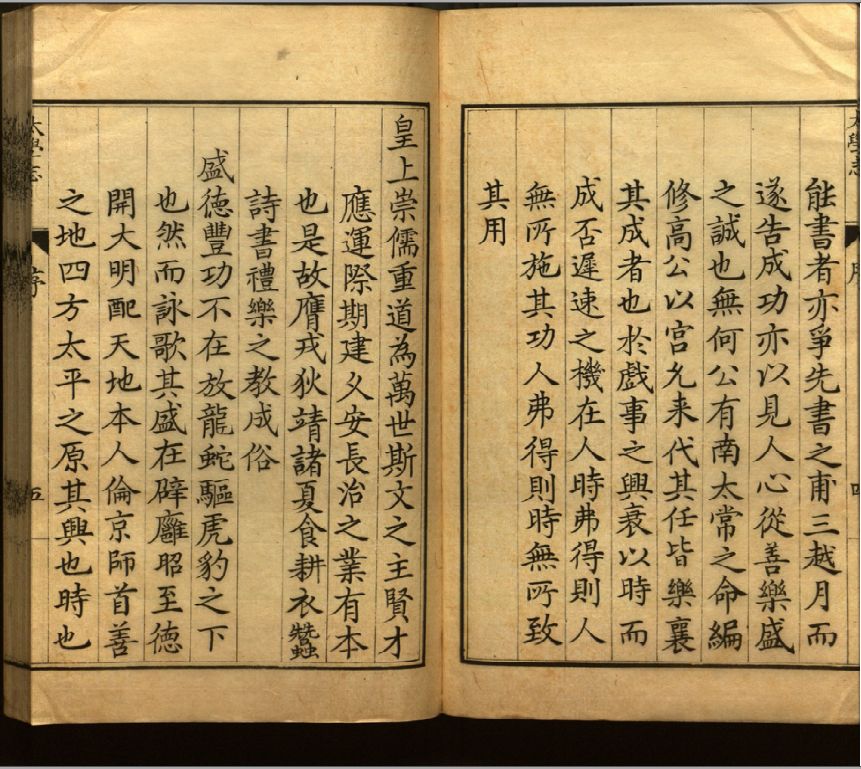 太學志
序
四
能書者亦爭先書之甫三越月而
遂告成功亦以見人心從善樂盛
之誠也無何公有南太常之命編
修高公以宫允来代其任皆樂襄
其成者也於戲事之興衰以時而
成否遲速之機在人時弗得則人
無所施其功人弗得則時無所致
其用
皇上崇儒重道為萬世斯文之主賢才
應運際期建久安長治之業有本
也是故膺戎狄靖諸夏食耕衣蠶
詩書禮樂之教成俗
盛徳豐功不在放龍蛇驅虎豹之下
也然而詠歌其盛在辟廱昭至徳
開大明配天地本人倫京師首善
之地四方太平之原其興也時也
太學志
序
五